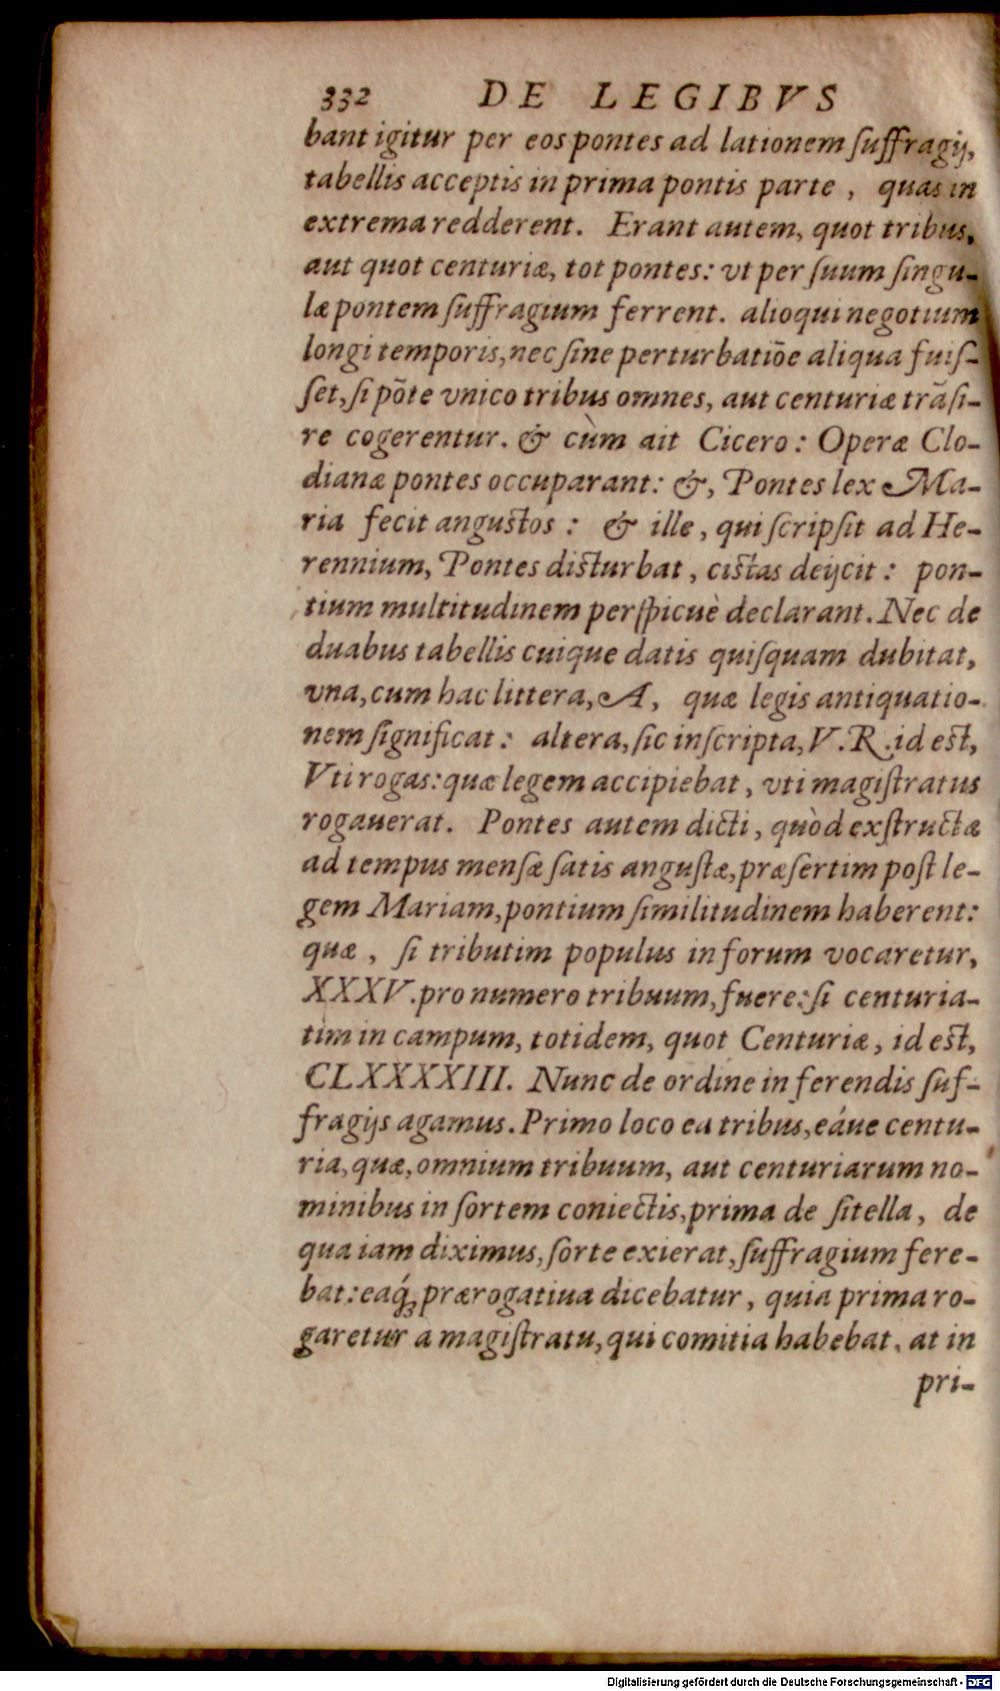 332 DE LEGIBVS
bant igitur per eos pontes ad lationem ſuffragij,
tabellis acceptis in prima pontis parte, quas in
extrema redderent. Erant autem, quot tribus,
aut quot centuriæ, tot pontes: vt per ſuum ſingu-
læ pontem ſuffragium ferrent. alioqui negotium
longi temporis, nec ſine perturbatiõe aliqua fuiſ-
ſet, ſi põte vnico tribus omnes, aut centuriæ trãſi-
re cogerentur. & cùm ait Cicero: Operæ Clo-
dianæ pontes occuparant: &, Pontes lex Ma-
ria fecit angustos: & ille, qui ſcripſit ad He-
rennium, Pontes disturbat, cistas deijcit: pon-
tium multitudinem perſpicuè declarant. Nec de
duabus tabellis cuique datis quiſquam dubitat,
vna, cum hac littera, A, quæ legis antiquatio-
nem ſignificat: altera, ſic inſcripta, V. R. id est,
Vti rogas: quæ legem accipiebat, vti magiſtratus
rogauerat. Pontes autem dicti, quòd exſtructæ
ad tempus menſæ ſatis anguſtæ, præſertim poſt le-
gem Mariam, pontium ſimilitudinem haberent:
quæ, ſi tributim populus in forum vocaretur,
XXXV. pro numero tribuum, fuere: ſi centuria-
tim in campum, totidem, quot Centuriæ, id est,
CLXXXXIII. Nunc de ordine in ferendis ſuf-
fragijs agamus. Primo loco ea tribus, eáue centu-
ria, quæ, omnium tribuum, aut centuriarum no-
minibus in ſortem coniectis, prima de ſitella, de
qua iam diximus, ſorte exierat, ſuffragium fere-
bat: eaq́ꝫ prærogatiua dicebatur, quia prima ro-
garetur a magiſtratu, qui comitia habebat. at in
pri-
Digitalisierung gefördert durch die Deutsche Forschungsgemeinschaft - DFG